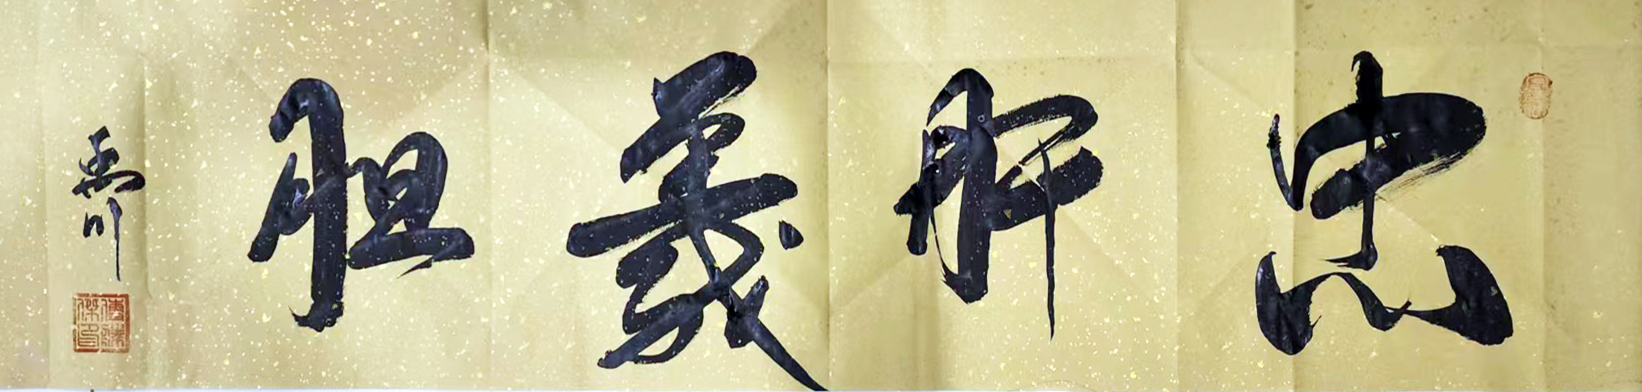 忠肝義胆
禹川